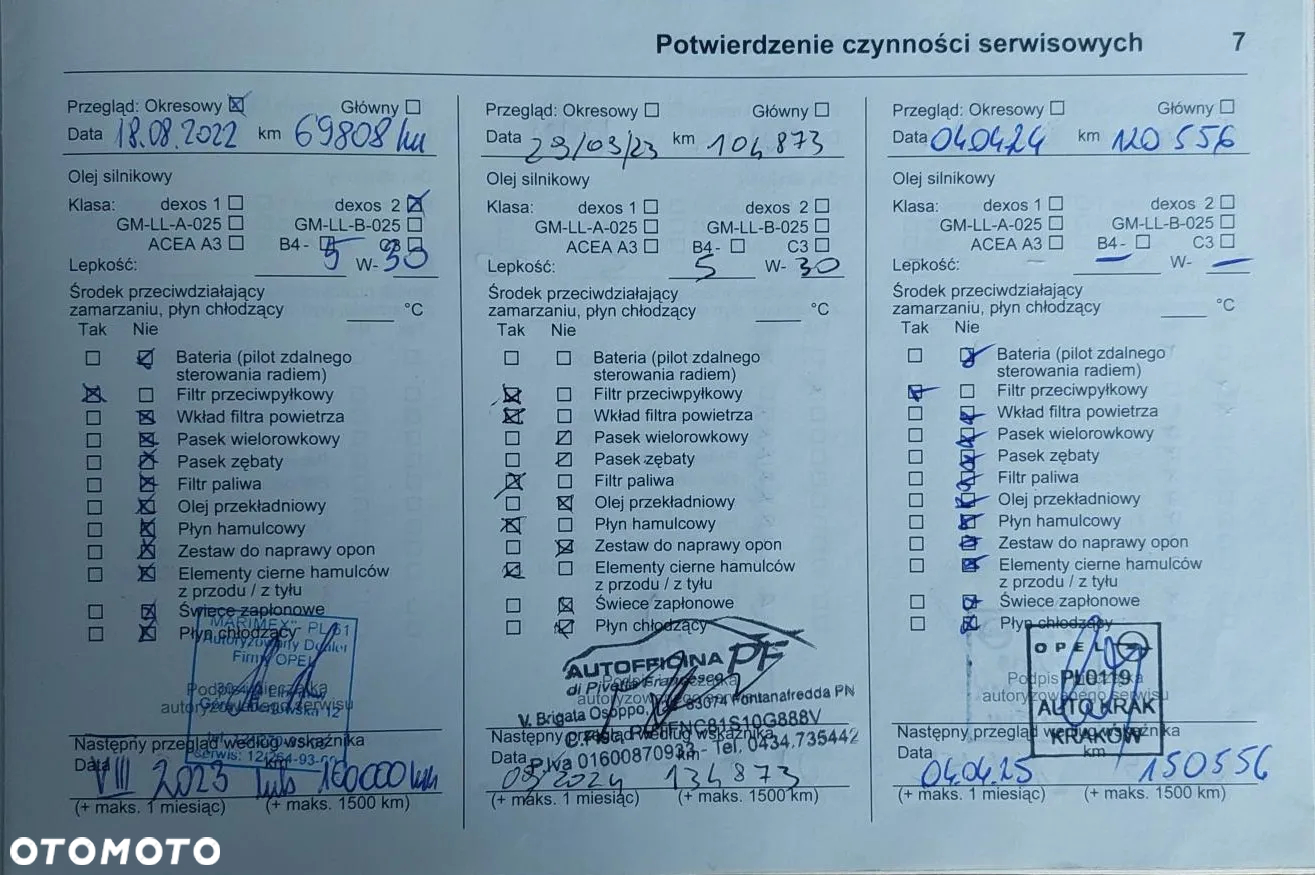 Potwierdzenie czynności serwisowych 7
Przegląd: Okresowy Główny
Data 18.08.2022 km 69808 km
Olej silnikowy
Klasa: dexos 1 dexos 2
GM-LL-A-025 GM-LL-B-025
ACEA A3 B4 - C3
Lepkość: 5 W- 30
Środek przeciwdziałający
zamarzaniu, płyn chłodzący °C
Tak Nie
Bateria (pilot zdalnego
sterowania radiem)
Filtr przeciwpyłkowy
Wkład filtra powietrza
Pasek wielorowkowy
Pasek zębaty
Filtr paliwa
Olej przekładniowy
Płyn hamulcowy
Zestaw do naprawy opon
Elementy cierne hamulców
z przodu / z tyłu
Świece zapłonowe
Płyn chłodzący
"MARIMEX" PL
Autoryzowany Dealer
Firmy OPEL
Podpis i pieczątka
autoryzowanego serwisu
Następny przegląd według wskaźnika
Data km
VIII 2023 lub 100000 km
(+ maks. 1 miesiąc) (+ maks. 1500 km)
Przegląd: Okresowy Główny
Data 29/03/23 km 104873
Olej silnikowy
Klasa: dexos 1 dexos 2
GM-LL-A-025 GM-LL-B-025
ACEA A3 B4 - C3
Lepkość: 5 W- 30
Środek przeciwdziałający
zamarzaniu, płyn chłodzący °C
Tak Nie
Bateria (pilot zdalnego
sterowania radiem)
Filtr przeciwpyłkowy
Wkład filtra powietrza
Pasek wielorowkowy
Pasek zębaty
Filtr paliwa
Olej przekładniowy
Płyn hamulcowy
Zestaw do naprawy opon
Elementy cierne hamulców
z przodu / z tyłu
Świece zapłonowe
Płyn chłodzący
AUTOFFICINA PF
di Francesco
V. Brigata Osoppo, 33074 Fontanafredda PN
P.Iva 01600870933 - Tel. 0434.735442
Następny przegląd według wskaźnika
Data km
03/2024 134873
(+ maks. 1 miesiąc) (+ maks. 1500 km)
Przegląd: Okresowy Główny
Data 04.04.24 km 120556
Olej silnikowy
Klasa: dexos 1 dexos 2
GM-LL-A-025 GM-LL-B-025
ACEA A3 B4 - C3
Lepkość: W-
Środek przeciwdziałający
zamarzaniu, płyn chłodzący °C
Tak Nie
Bateria (pilot zdalnego
sterowania radiem)
Filtr przeciwpyłkowy
Wkład filtra powietrza
Pasek wielorowkowy
Pasek zębaty
Filtr paliwa
Olej przekładniowy
Płyn hamulcowy
Zestaw do naprawy opon
Elementy cierne hamulców
z przodu / z tyłu
Świece zapłonowe
Płyn chłodzący
OPEL
PL0119
AUTO KRAK
KRAKÓW
Podpis i pieczątka
autoryzowanego serwisu
Następny przegląd według wskaźnika
Data km
04.04.25 150556
(+ maks. 1 miesiąc) (+ maks. 1500 km)
OTOMOTO